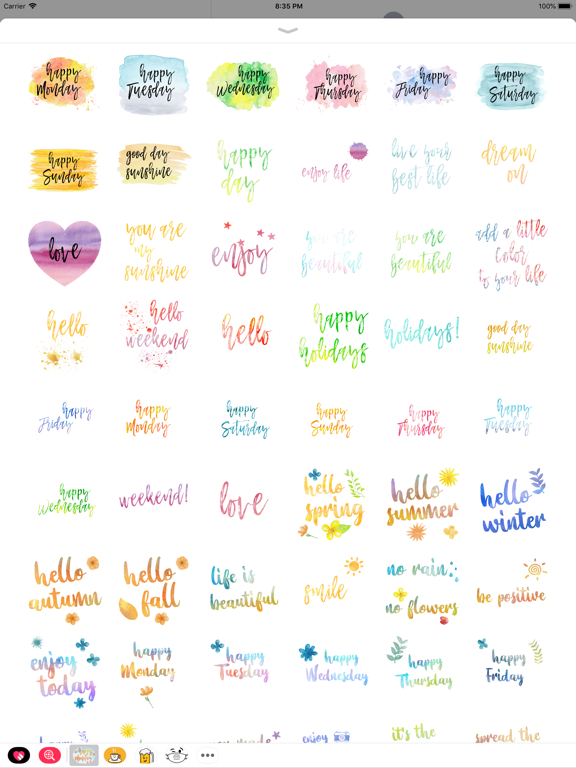 Carrier
8:35 PM
100%
happy
Monday
happy
Tuesday
happy
Wednesday
happy
Thursday
happy
Friday
happy
Saturday
happy
Sunday
good day
sunshine
happy
day
enjoy life
live your
best life
dream
on
love
you are
my
sunshine
enjoy
you are
beautiful
you are
beautiful
add a little
color
to your life
hello
hello
weekend
hello
happy
holidays
holidays!
good day
sunshine
happy
Friday
happy
Monday
happy
Saturday
happy
Sunday
happy
Thursday
happy
Tuesday
happy
Wednesday
weekend!
love
hello
spring
hello
summer
hello
winter
hello
autumn
hello
fall
life is
beautiful
smile
no rain
no flowers
be positive
enjoy
today
happy
Monday
happy
Tuesday
happy
Wednesday
happy
Thursday
happy
Friday
made
enjoy
it's the
spread the